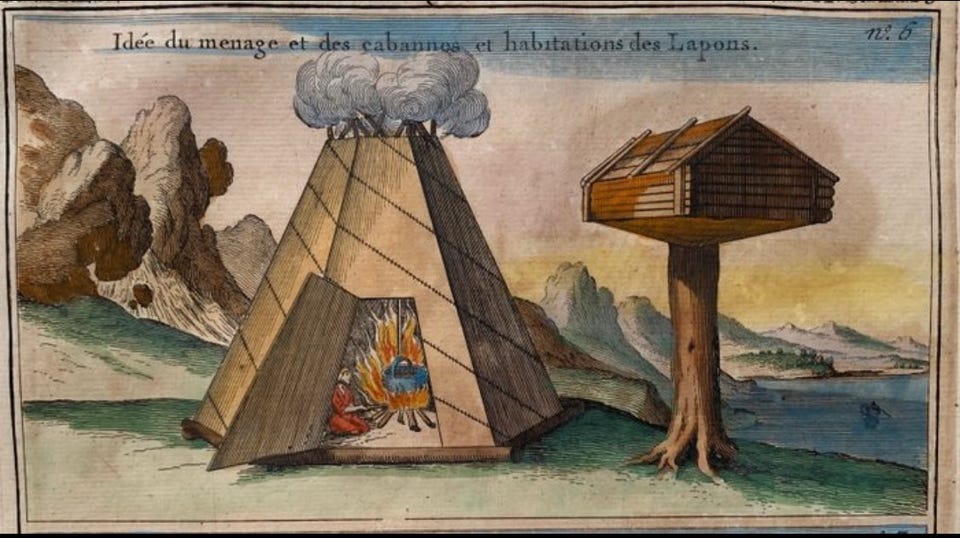 Idée du menage et des cabannes et habitations des Lapons.
nº. 6